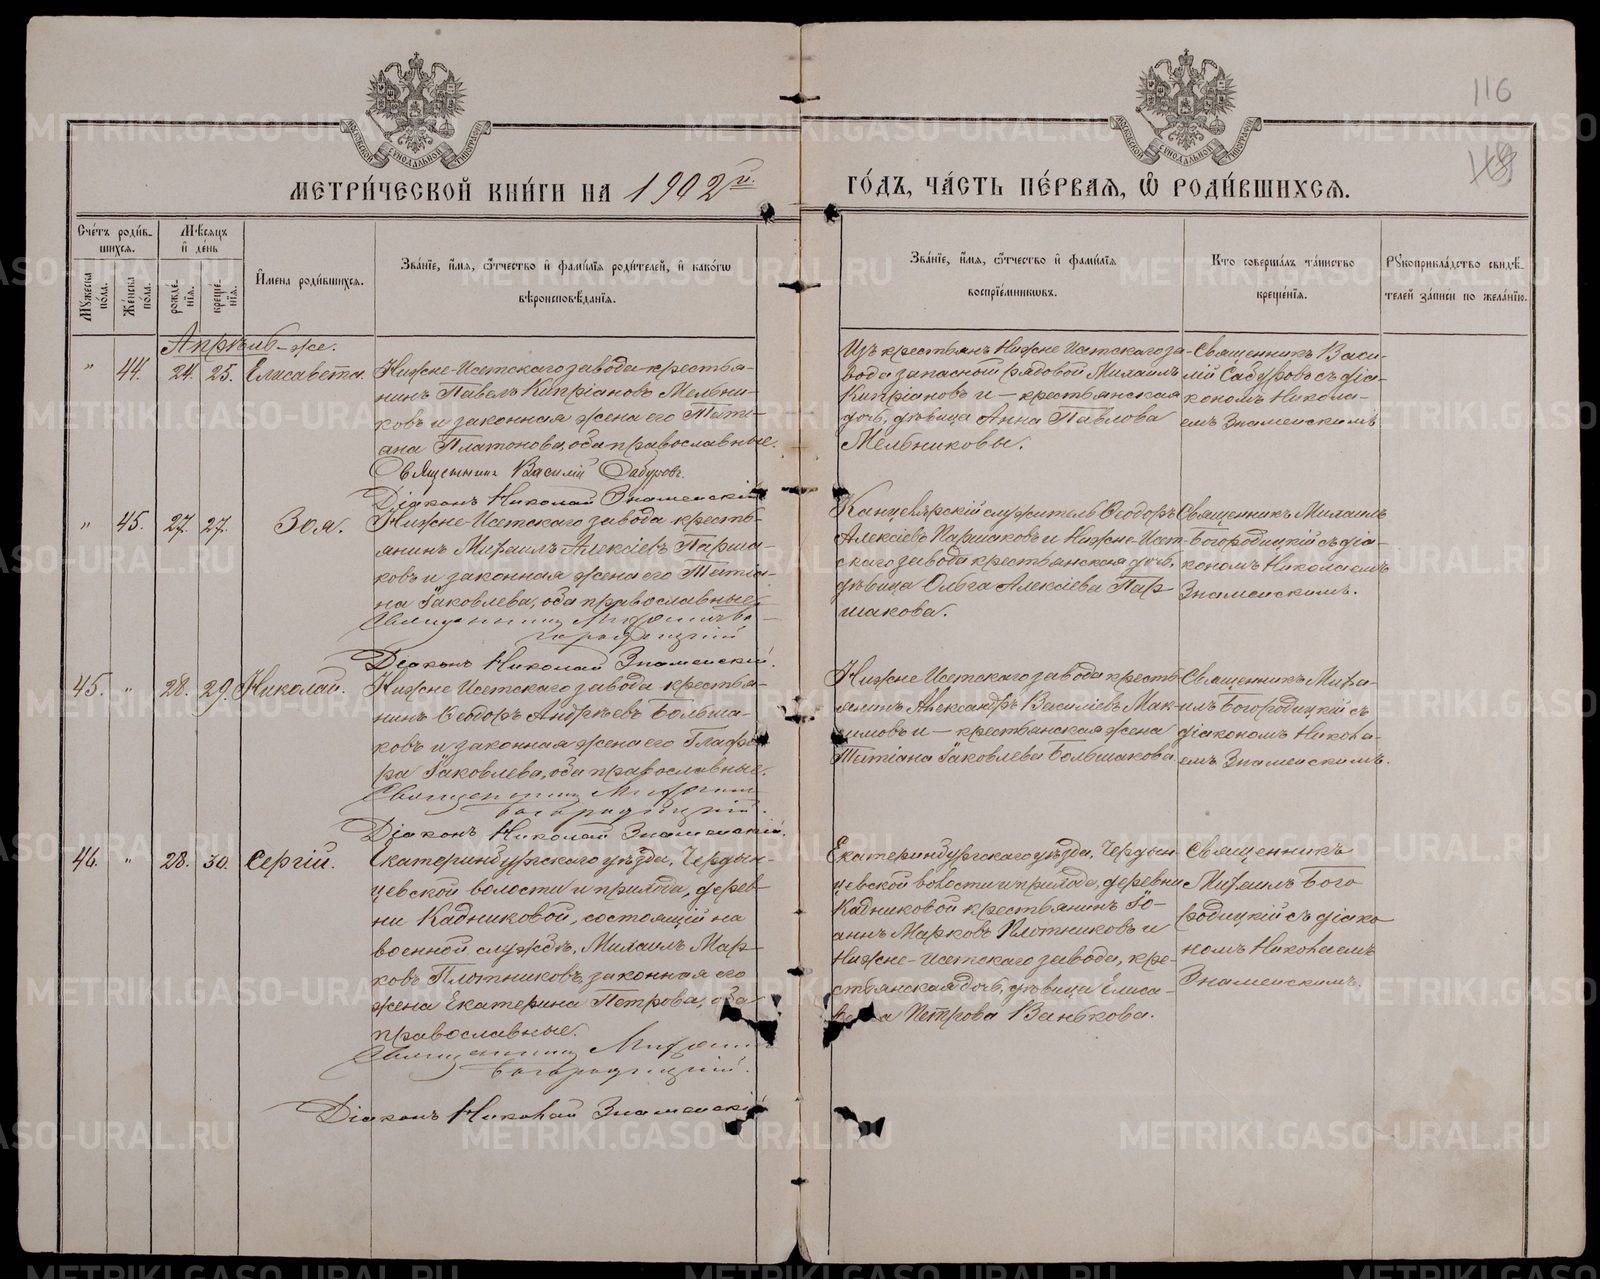 116
118
МЕТРИ́ЧЕСКОЙ КНИ́ГИ НА 1902й. ГО́ДЪ, ЧА́СТЬ ПЕ́РВАЯ, Ѿ РОДИ́ВШИХСЯ.
Счетъ родив-
шихся.
Мѣсяцъ
и день
Имена родившихся.
Званіе, имя, отчество и фамилія родителей, и какогѡ
вѣроисповѣданія.
Званіе, имя, отчество и фамилія
воспріемникѡвъ.
Кто совершалъ таинство
крещенія.
Рукоприкладство свидѣ-
телей записи по желанію.
Мужеска
пола.
Женска
пола.
рожде-
нія.
креще-
нія.
Апрѣль-же.
" 44. 24. 25. Елисавета.
Нижне-Исетскаго завода крестья-
нинъ Павелъ Кипріановъ Мельни-
ковъ и законная жена его Тати-
ана Платонова, оба православные.
Священникъ Василій Сабуровъ
Діаконъ Николай Знаменскій
Изъ крестьянъ Нижне Исетскаго за-
вода запасной рядовой Михаилъ
Кипріановъ и – крестьянская
дочь, дѣвица Анна Павлова
Мельниковы.
Священникъ Васи-
лій Сабуровъ съ діа-
кономъ Никола-
емъ Знаменскимъ
" 45. 27. 27. Зоя.
Нижне-Исетскаго завода кресть-
янинъ Михаилъ Алексіевъ Парша-
ковъ и законная жена его Татіа-
на Іаковлева, оба православные.
Священникъ Михаилъ Бо-
городицкій
Діаконъ Николай Знаменскій.
Канцелярскій служитель Ѳеодоръ
Алексіевъ Паршаковъ и Нижне-Исет-
скаго завода крестьянская дочь,
дѣвица Ольга Алексіева Пар-
шакова.
Священникъ Михаилъ
Богородицкій съ діа-
кономъ Николаемъ
Знаменскимъ.
45. " 28. 29. Николай.
Нижне Исетскаго завода крестья-
нинъ Ѳеодоръ Андреевъ Больша-
ковъ и законная жена его Глафи-
ра Іаковлева, оба православные.
Священникъ Михаилъ
Богородицкій.
Діаконъ Николай Знаменскій.
Нижне Исетскаго завода кресть-
янинъ Александръ Василіевъ Мак-
симовъ и – крестьянская жена
Татіана Іаковлева Большакова.
Священникъ Миха-
илъ Богородицкій съ
діакономъ Никола-
емъ Знаменскимъ.
46. " 28. 30. Сергій.
Екатеринбургскаго уѣзда, Чердын-
цевской волости и прихода, дерев-
ни Кадниковой, состоящій на
военной службѣ, Михаилъ Мар-
ковъ Плотниковъ, законная его
жена Екатерина Петрова, оба
православные.
Священникъ Михаилъ
Богородицкій.
Діаконъ Николай Знаменскій
Екатеринбургскаго уѣзда, Чердын-
цевской волости и прихода, деревни
Кадниковой крестьянинъ Іо-
аннъ Марковъ Плотниковъ и
Нижне-Исетскаго завода, кре-
стьянская дочь, дѣвица Елиса-
вета Петрова Ванькова.
Священникъ
Михаилъ Бого
родицкій съ діако
номъ Николаемъ
Знаменскимъ.